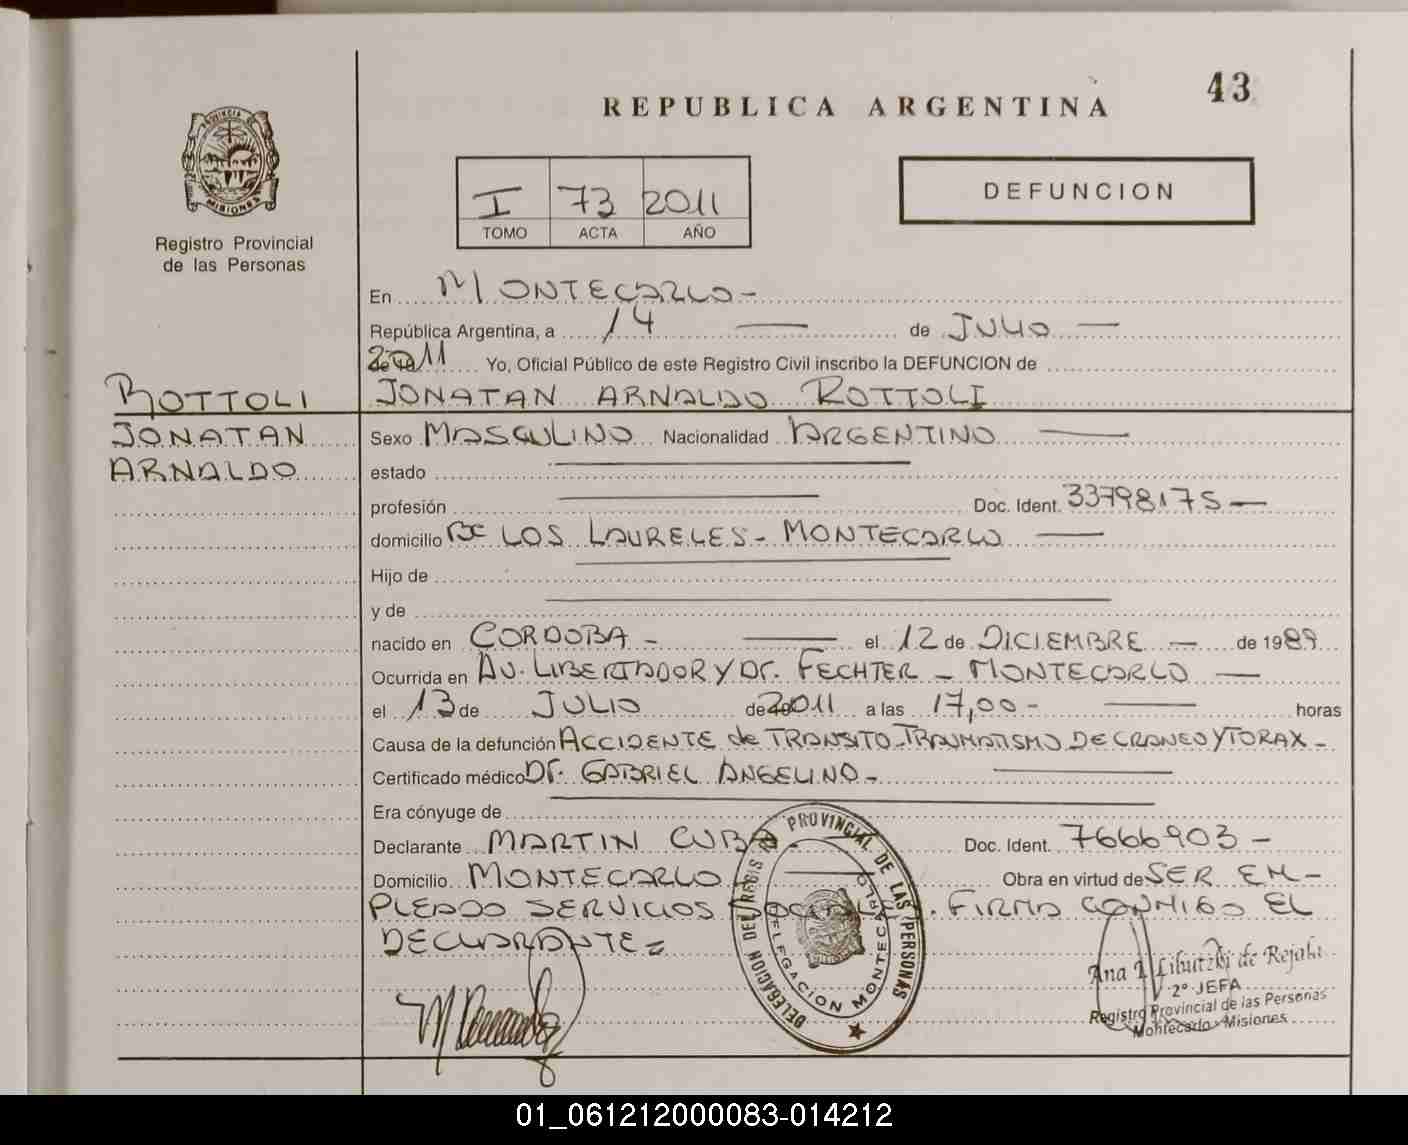 43
REPUBLICA ARGENTINA
PROVINCIA DE
MISIONES
Registro Provincial
de las Personas
I 73 2011
TOMO ACTA AÑO
DEFUNCION
En MONTECARLO-
República Argentina, a 14 de JULIO
2011 Yo, Oficial Público de este Registro Civil inscribo la DEFUNCION de
ROTTOLI JONATAN ARNALDO ROTTOLI
JONATAN Sexo MASCULINO Nacionalidad ARGENTINO
ARNALDO estado
profesión Doc. Ident. 33798175-
domicilio Bº LOS LAURELES- MONTECARLO
Hijo de
y de
nacido en CORDOBA - el 12 de DICIEMBRE - de 1989
Ocurrida en AV. LIBERTADOR Y DR. FECHTER - MONTECARLO
el 13 de JULIO de 2011 a las 17,00- horas
Causa de la defunción ACCIDENTE de TRANSITO-TRAUMATISMO DE CRANEO Y TORAX-
Certificado médico Dr. GABRIEL ANGELINO-
Era cónyuge de
Declarante MARTIN CUBA Doc. Ident. 7666903-
Domicilio MONTECARLO Obra en virtud de SER EM-
PLEADO SERVICIOS SOCIALES. FIRMA CONMIGO EL
DECLARANTE=
DELEGACION DEL REGISTRO PROVINCIAL DE LAS PERSONAS
DELEGACION MONTECARLO
Ana de Rejala
2º JEFA
Registro Provincial de las Personas
Montecarlo - Misiones
01_061212000083-014212